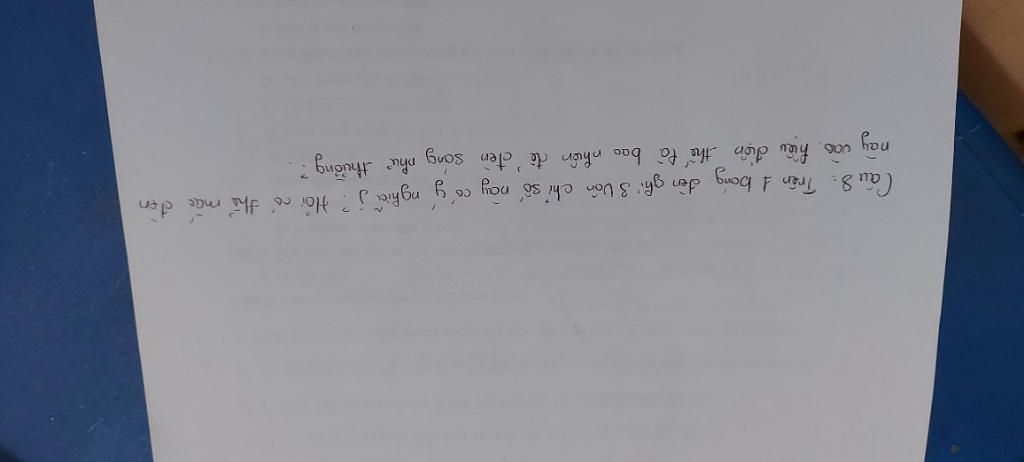 Câu 8: Trên 1 bóng đèn ghi 3 Vôn chỉ số này có ý nghĩa j? Hỏi có thể mắc đèn
này vào hiệu điện thế là bao nhiên để đèn sáng như thường?